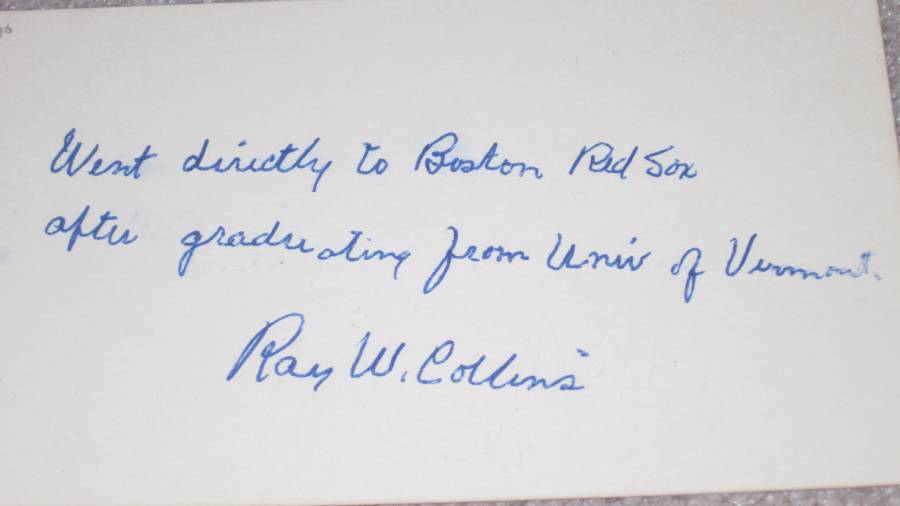 Went directly to Boston Red Sox
after graduating from Univ of Vermont.
Ray W. Collins